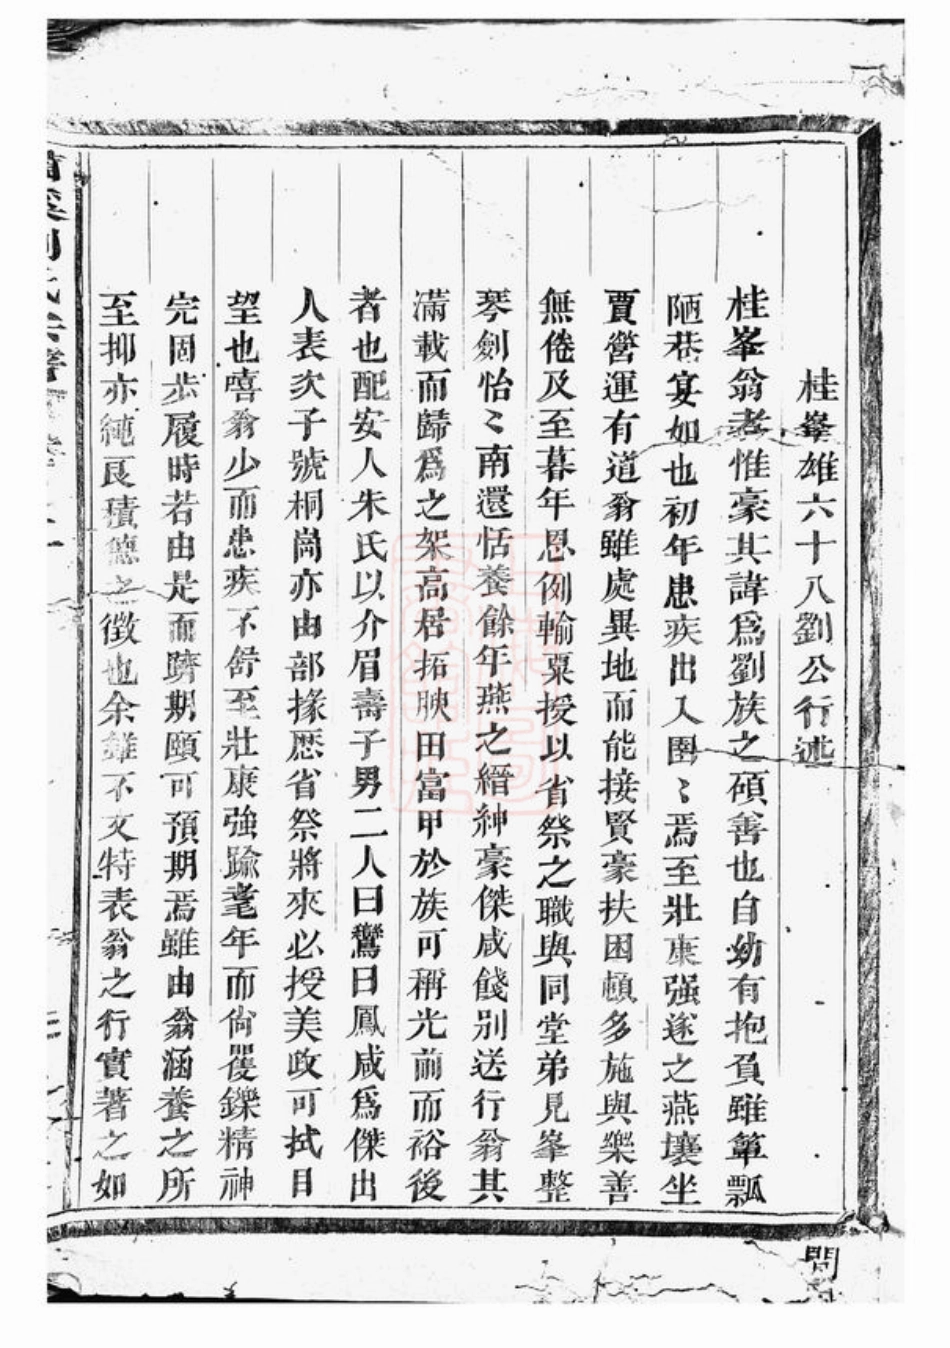 桂峯雄六十八劉公行述
桂峯翁者惟豪其諱爲劉族之碩善也自幼有抱負雖簞瓢
陋巷宴如也初年患疾出入圉〻焉至壯康强遂之燕壤坐
賈營運有道翁雖處異地而能接賢豪扶困頓多施與樂善
無倦及至暮年恩例輸粟授以省祭之職與同堂弟見峯整
琴劍怡〻南還恬養餘年燕之縉紳豪傑咸餞別送行翁其
滿載而歸爲之架高居拓腴田富甲於族可稱光前而裕後
者也配安人朱氏以介眉壽子男二人曰鸞曰鳳咸爲傑出
人表次子號桐崗亦由部掾歷省祭將來必授美政可拭目
望也嘻翁少而患疾不舒至壯康強踰耄年而尙矍鑠精神
完固步履時若由是而躋期頤可預期焉雖由翁涵養之所
至抑亦純良積德之徵也余雖不文特表翁之行實著之如
劉氏宗譜
問